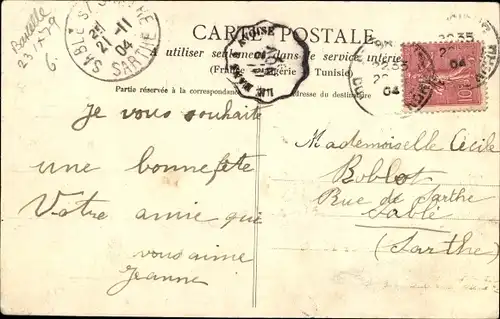 Bataille
23/1/79
6.
CARTE POSTALE
à utiliser seulement dans le service intérieur
(France, Algérie & Tunisie)
Partie réservée à la correspondance
Adresse du destinataire
SABLE S/ SARTHE
2E
21-11
04
SARTHE
22 35
22
04
10
Je vous souhaite
une bonne fête
Votre amie qui
vous aime
Jeanne
Mademoiselle Cécile
Boblot
Rue de Sarthe
Sablé
(Sarthe)